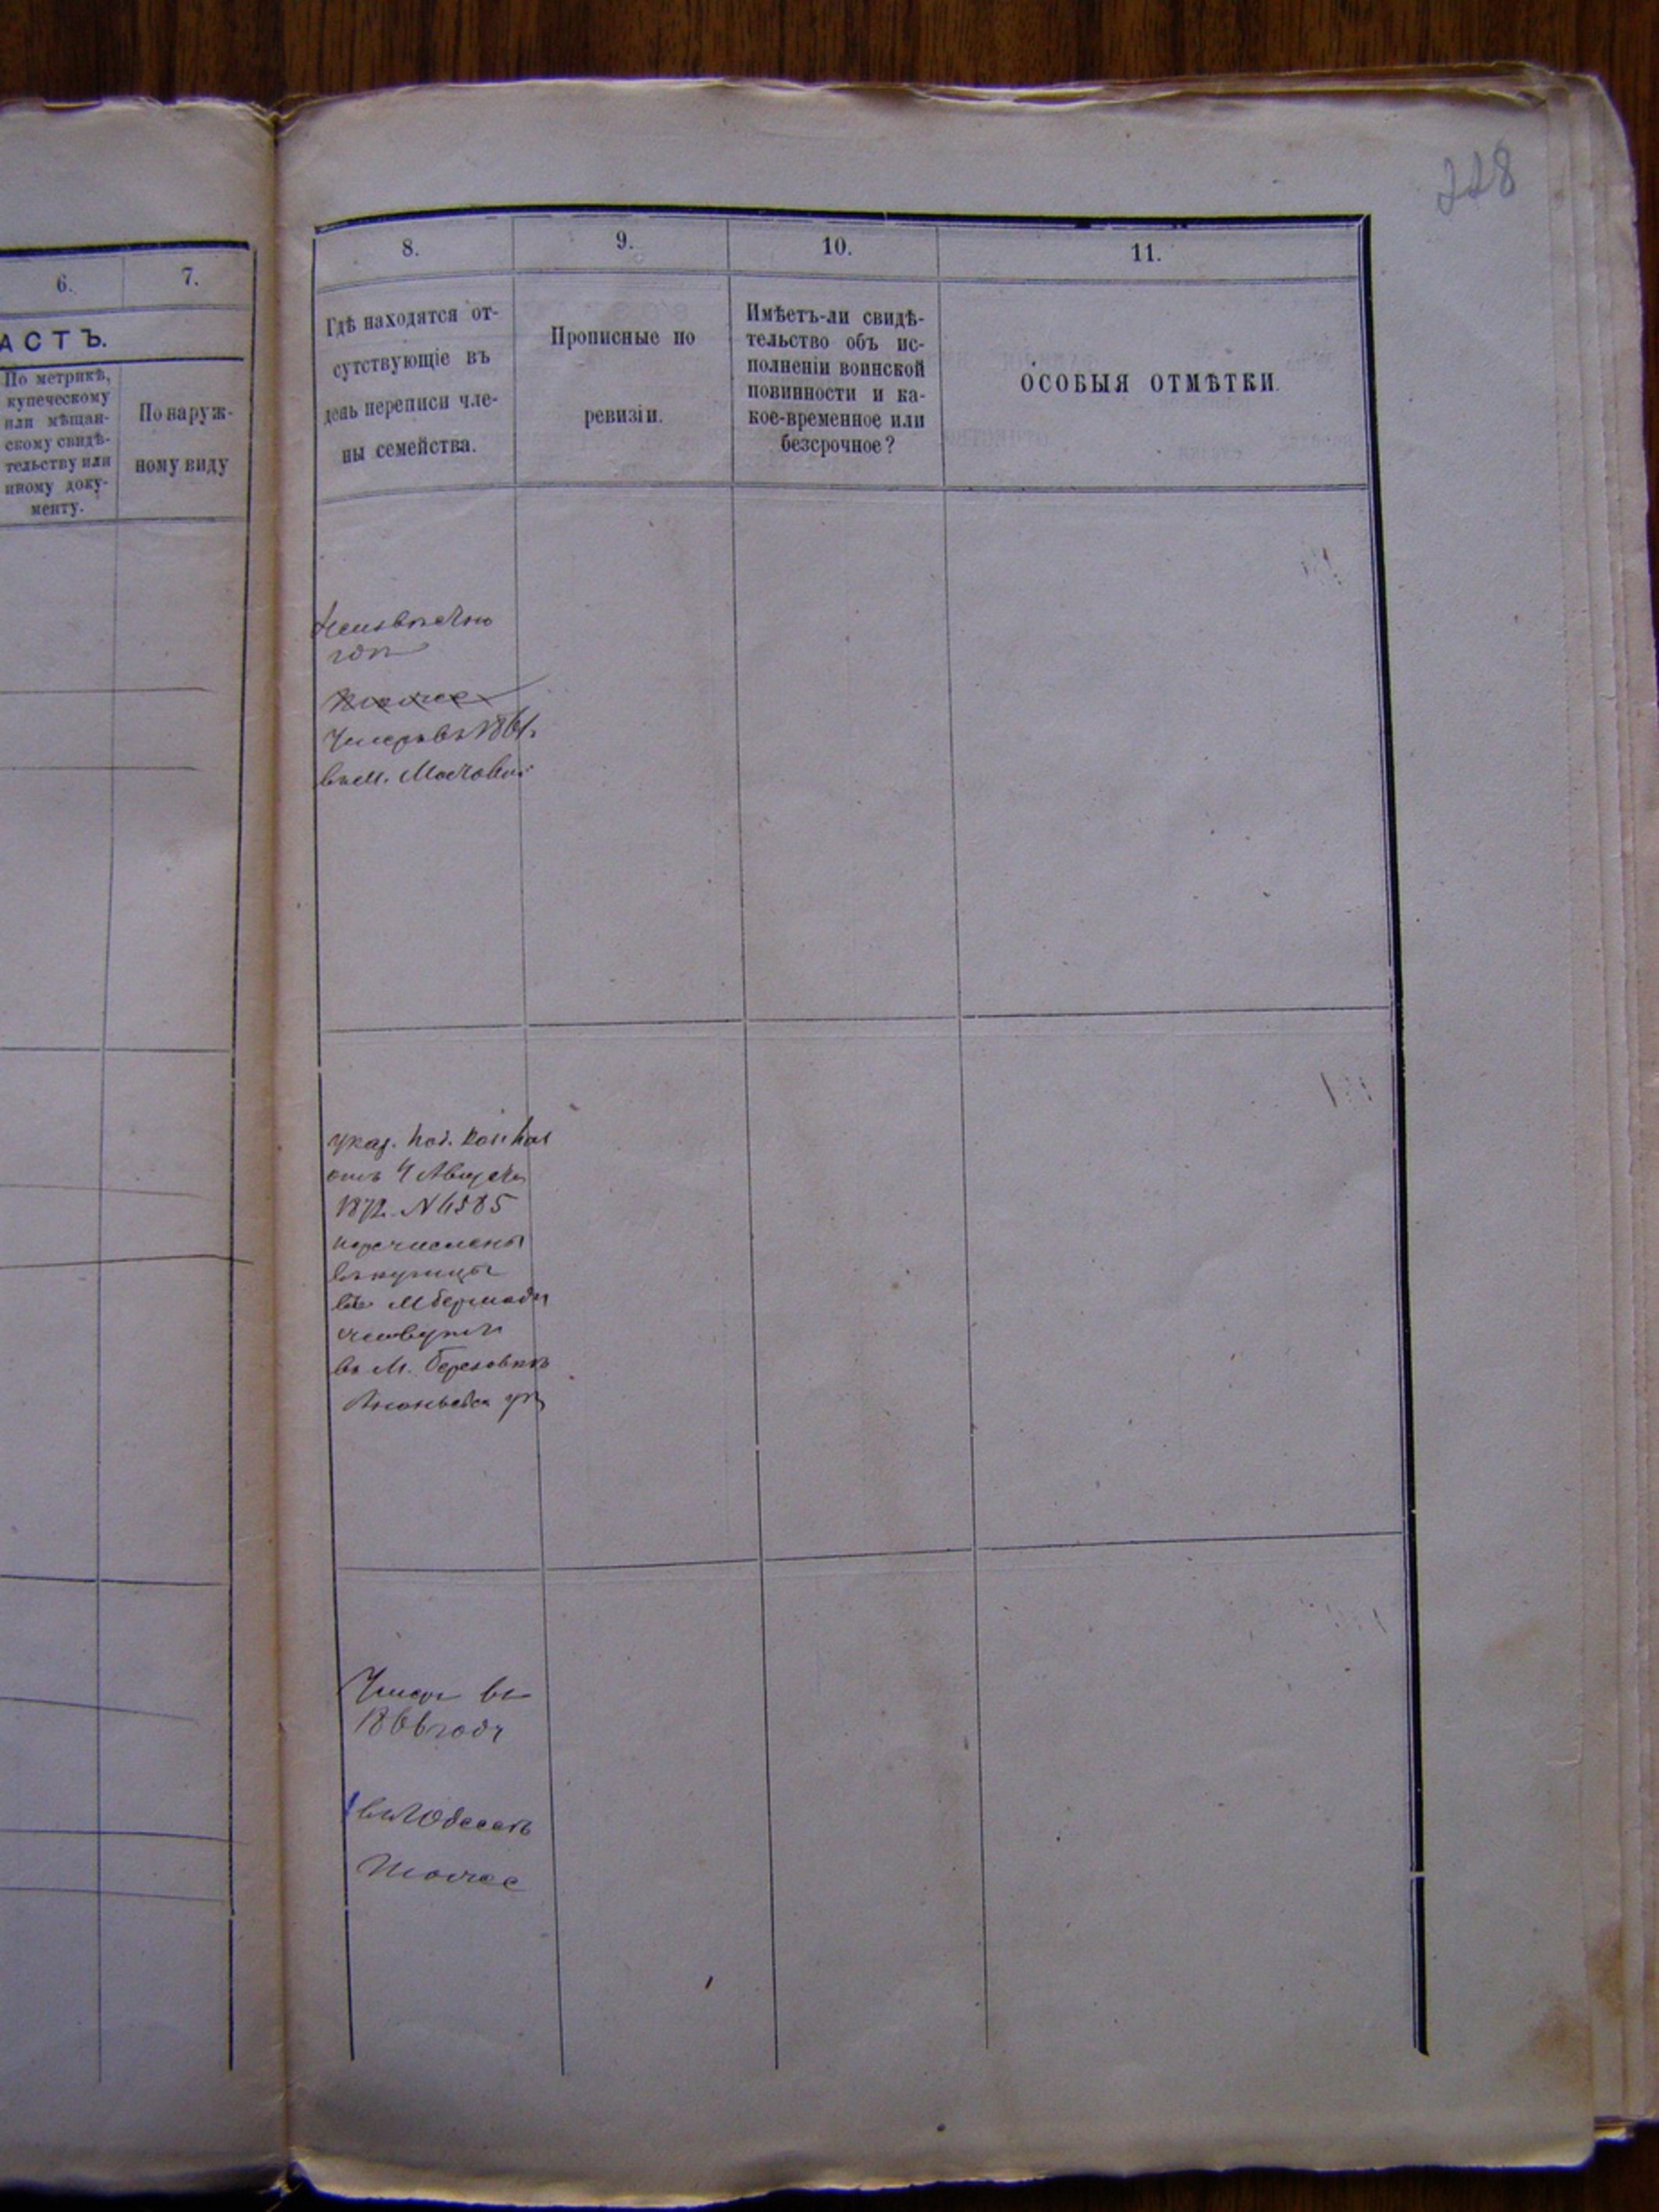 228
6.
7.
АСТЪ.
По метрикѣ,
купеческому
или мѣщан-
скому свидѣ-
тельству или
иному доку-
менту.
По наруж-
ному виду
8.
9.
10.
11.
Гдѣ находятся от-
сутствующіе въ
день переписи чле-
ны семейства.
Прописные по
ревизіи.
Имѣетъ-ли свидѣ-
тельство объ ис-
полненіи воинской
повинности и ка-
кое-временное или
безсрочное?
ОСОБЫЯ ОТМѢТКИ.
Неизвѣстно
гдѣ
Умеръ въ 1861.
въ м.
указ. Под. Каз. Пал
отъ 4 Августа
1872. N 4585
перечислены
въ купцы
въ
въ М. Березовкѣ
Ананьевск. уѣ
Умеръ въ
1866 году
въ Одессѣ
Тоже